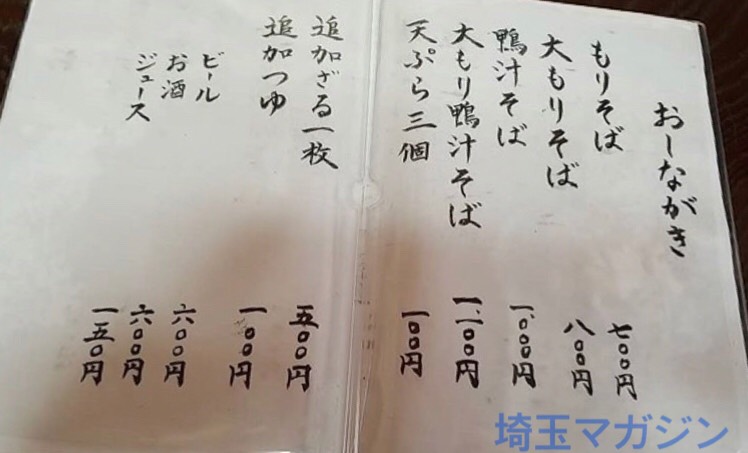 おしながき
もりそば 七〇〇円
大もりそば 八〇〇円
鴨汁そば 一、〇〇〇円
大もり鴨汁そば 一、一〇〇円
天ぷら三個 一〇〇円
追加ざる一枚 五〇〇円
追加つゆ 一〇〇円
ビール 六〇〇円
お酒 六〇〇円
ジュース 一五〇円
埼玉マガジン